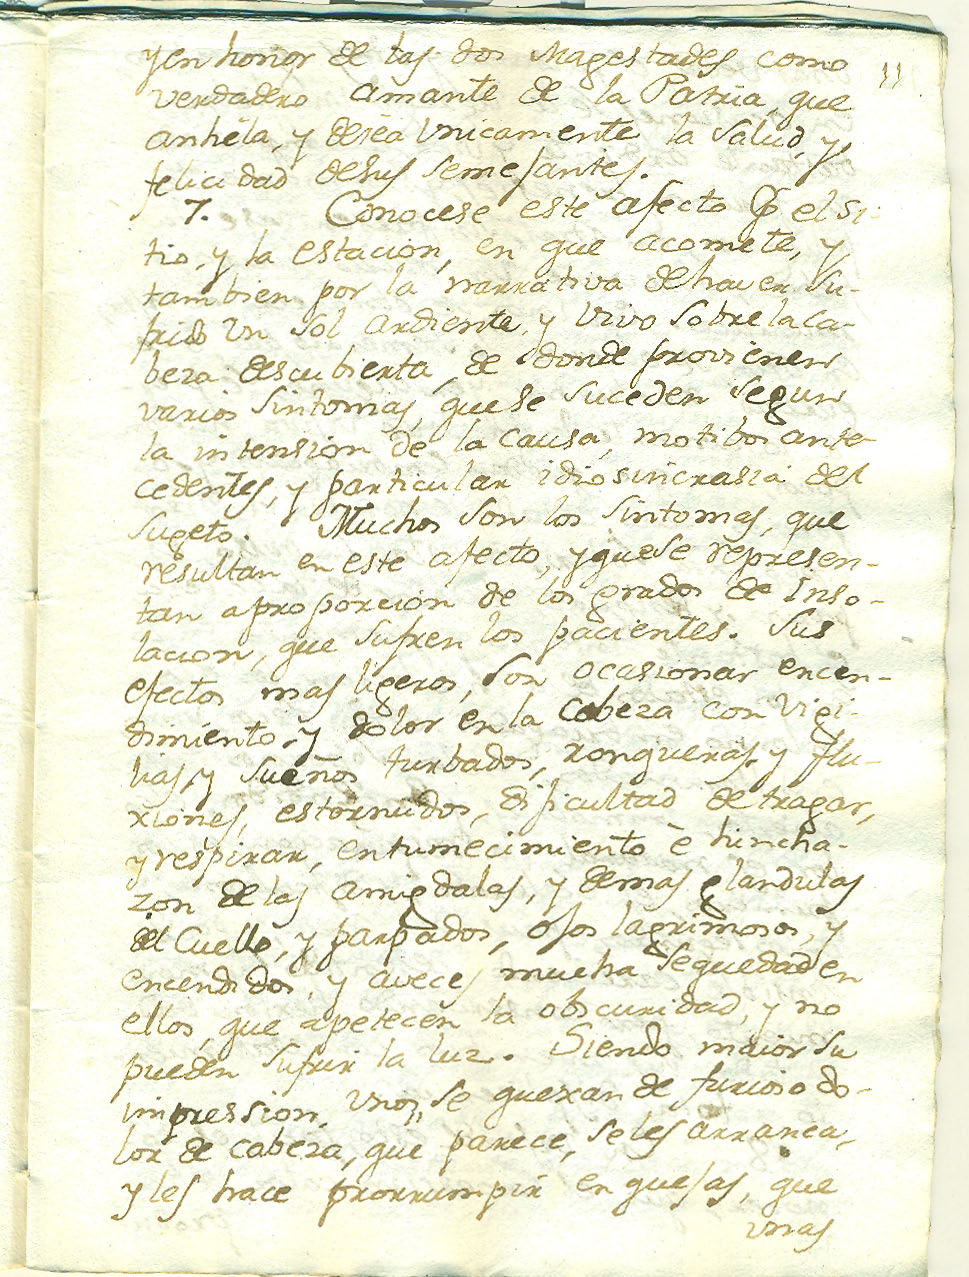 y en honor de las dos Magestades como
11
verdadero amante de la Patria, que
anhéla, y deséa Unicamente la Salud, y
felicidad desus semejantes.
7. Conocese este afecto p el si-
tio, y la estacion, en que acomete, y
tambien por la narrativa dehaver su-
frido Un Sol ardiente, y vivo sobre la ca-
beza descubierta, de donde provienen
varios sintomas, quese suceden segun
la intension de la causa, motibos ante-
cedentes, y particular idiosincrasia del
sugeto. Muchos son los sintomas, que
resultan en este afecto, y quese represen-
tan aproporcion de los grados de Inso-
lacion, que sufren los pacientes. Sus
efectos mas ligeros, son ocasionar encen-
dimiento, y dolor en la Cabeza con Vigi-
lias, y sueños turbados, ronqueras, y flu-
xiones, estornudos, dificultad de tragar,
y respirar, entumecimiento è hincha-
zon de las amigdalas, y demas glandulas
del Cuello, y parpados, ojos lagrimosos, y
encendidos, y aveces mucha sequedad en
ellos, que apetecen la obscuridad, y no
pueden sufrir la luz. Siendo maior su
impression, unos, se quexan de furioso do-
lor de cabeza, que parece, se les arranca,
y les hace prorrumpir en quejas, que
unas